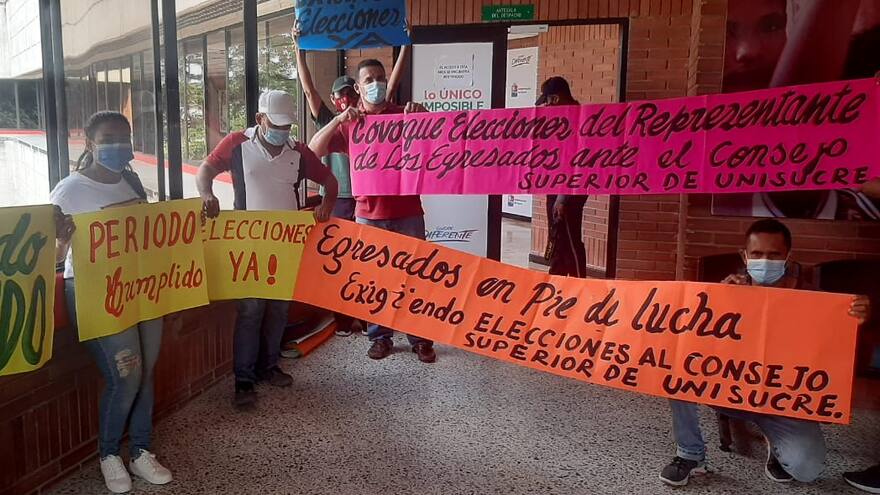 Elecciones
ANTESALA
DEL DESPACHO
lo ÚNICO
IMPOSIBLE
DIFERENTE
Covoque Elecciones del Representante
de Los Egresados ante el Consejo
SUPERIOR DE UNISUCRE
PERIODO
Cumplido
ELECCIONES
YA!
Egresados en Pie de lucha
Exigiendo ELECCIONES AL CONSEJO
SUPERIOR DE UNISUCRE.